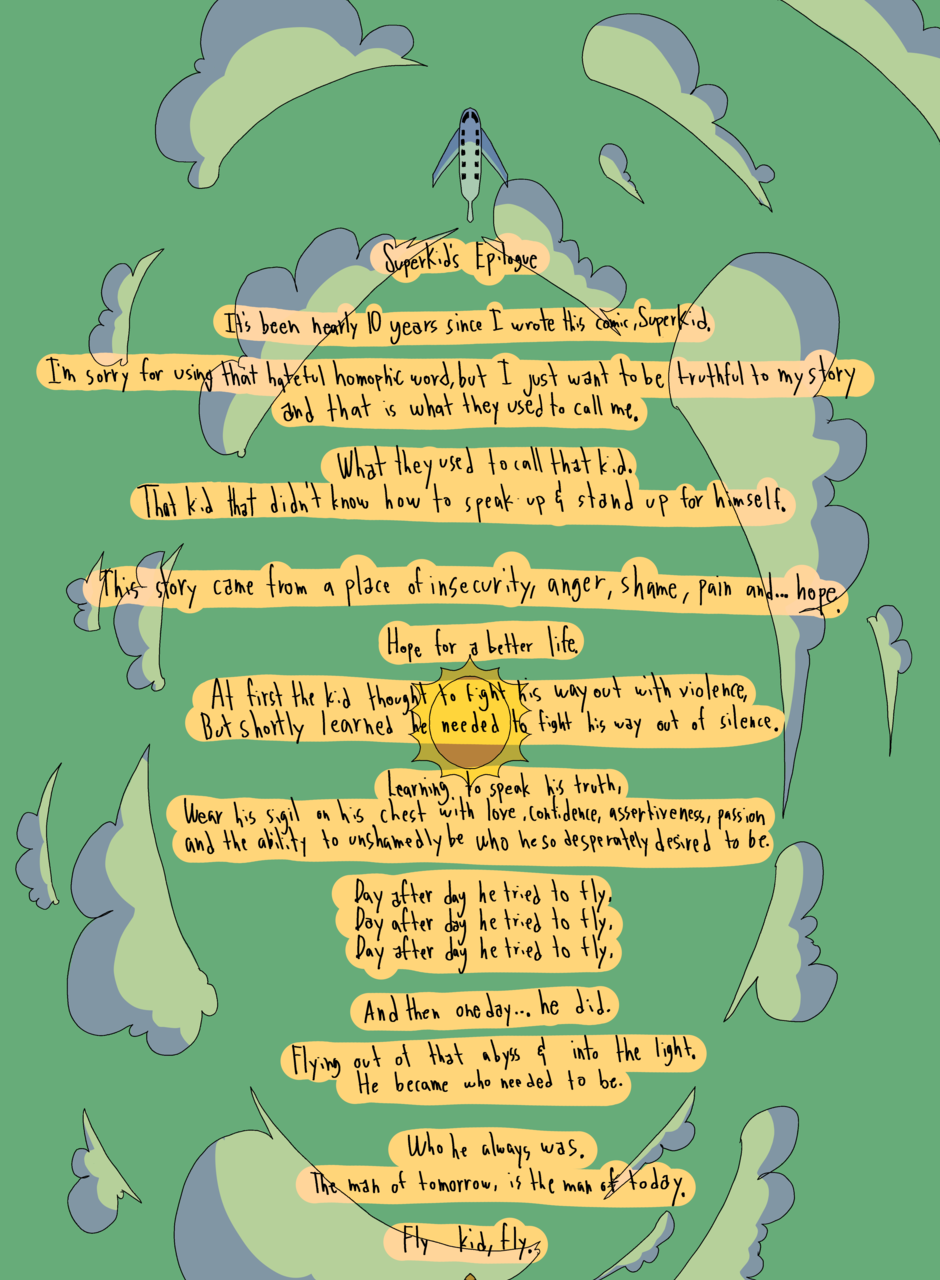 SuperKid's Epilogue
It's been nearly 10 years since I wrote this comic, SuperKid.
I'm sorry for using that hateful homophic word, but I just want to be truthful to my story
and that is what they used to call me.
What they used to call that kid.
That kid that didn't know how to speak up & stand up for himself.
This story came from a place of insecurity, anger, shame, pain and... hope.
Hope for a better life.
At first the kid thought to fight his way out with violence,
But shortly learned he needed to fight his way out of silence.
Learning to speak his truth,
Wear his sigil on his chest with love, confidence, assertiveness, passion
and the ability to unshamedly be who he so desperately desired to be.
Day after day he tried to fly.
Day after day he tried to fly.
Day after day he tried to fly.
And then one day... he did.
Flying out of that abyss & into the light.
He became who needed to be.
Who he always was.
The man of tomorrow, is the man of today.
Fly kid, fly.